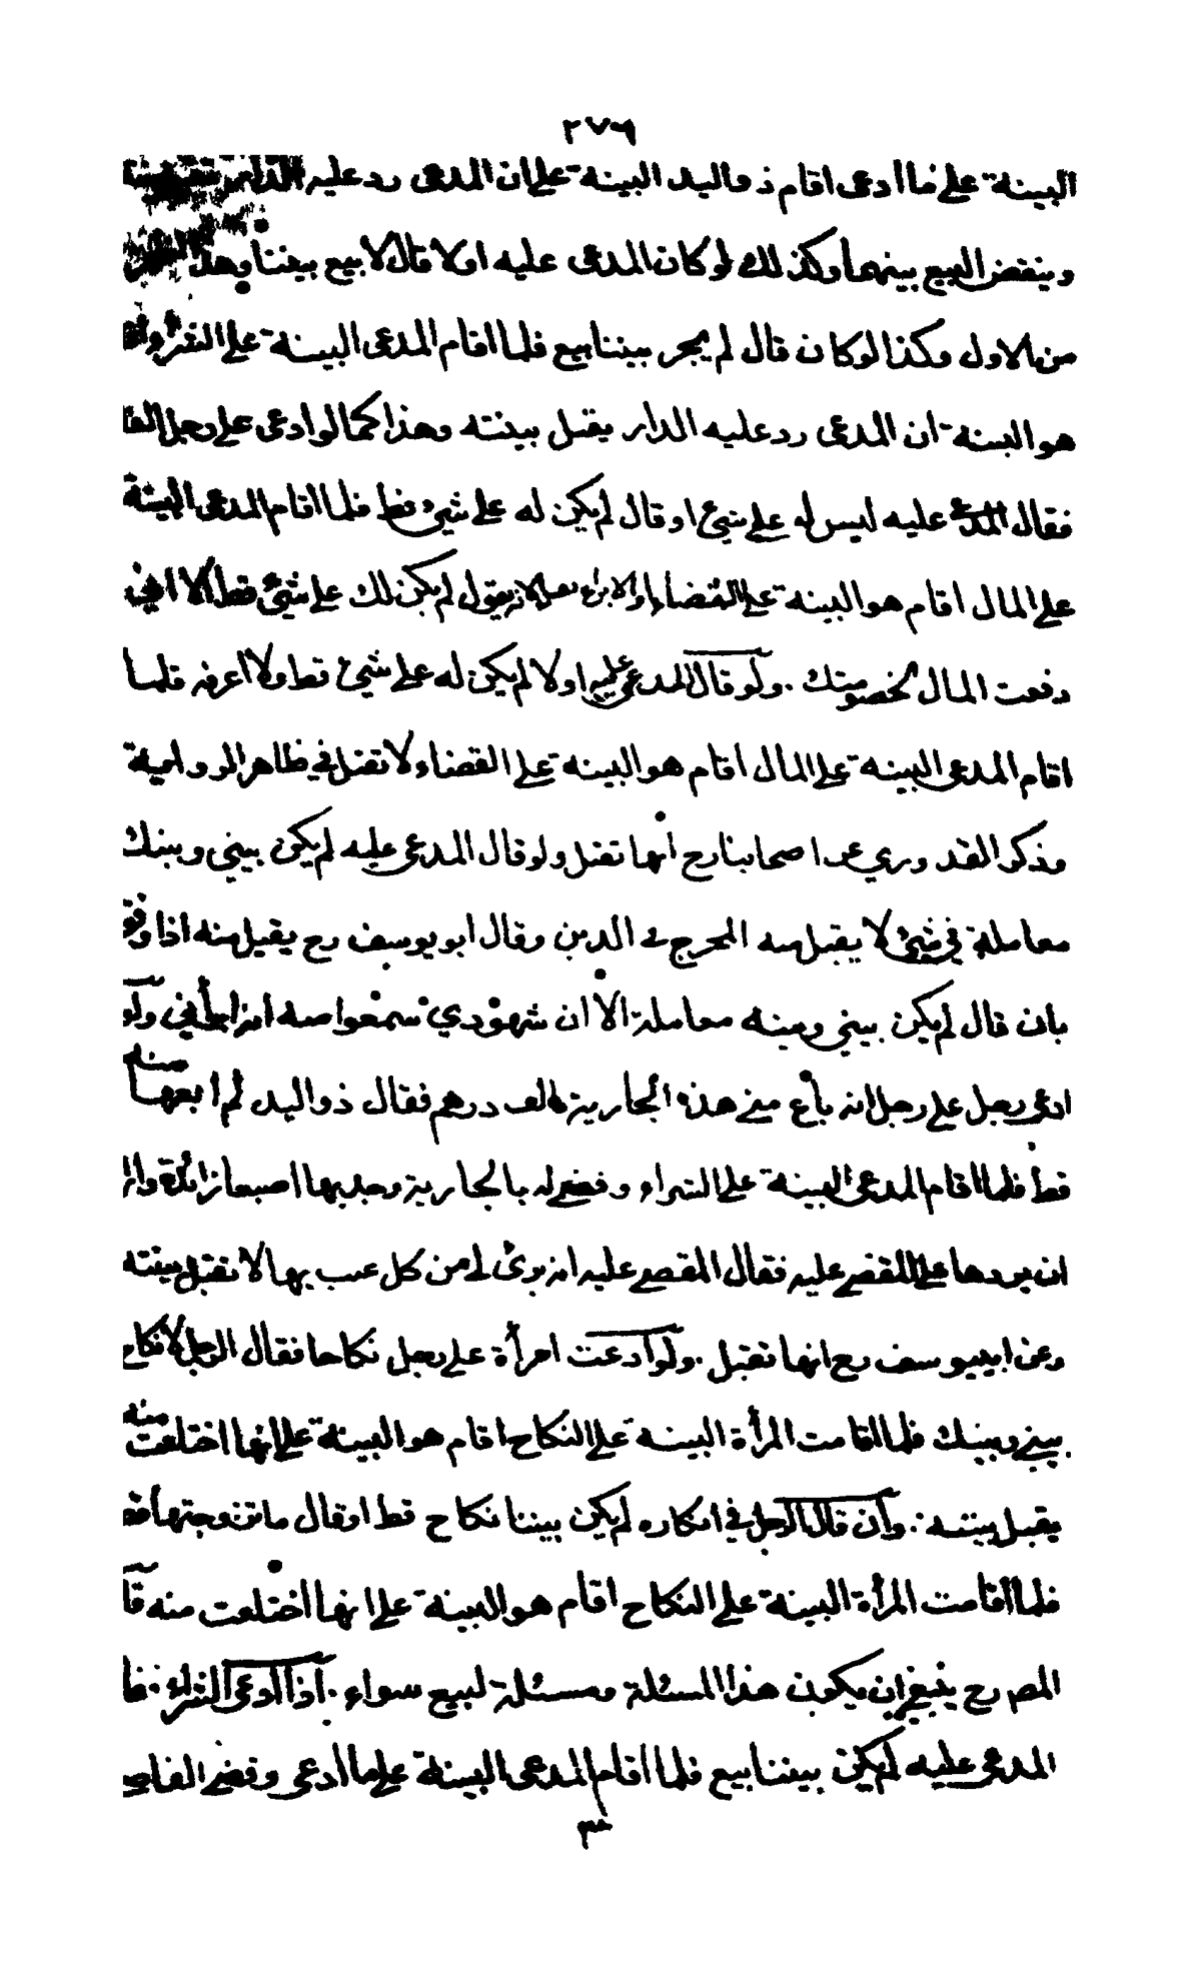 ٢٧٦
البينة على ما ادعى اقام ذو اليد البينة على ان المدعى رد عليه الدار تقبل بينته
وينقض البيع بينهما وكذلك لو كان المدعى عليه اولا قال لا بيع بيننا وهذا
من الاول وكذا لو كان قال لم يجر بيننا بيع فلما اقام المدعى البينة على الشراء واقام
هو البينة ان المدعى رد عليه الدار يقبل بينته وهذا كما لو ادعى على رجل الفا
فقال المدعى عليه ليس له علي شيئ او قال لم يكن له علي شيئ قط فلما اقام المدعى البينة
على المال اقام هو البينة على القضاء او الابراء تقبل لانه يقول لم يكن لك علي شيئ قط الا اني
دفعت المال لخصومتك . ولو قال المدعى عليه اولا لم يكن له علي شيئ قط ولا اعرفه فلما
اقام المدعى البينة على المال اقام هو البينة على القضاء لا تقبل في ظاهر الرواية
وذكر القدوري عن اصحابنا رح انها تقبل ولو قال المدعى عليه لم يكن بيني وبينك
معاملة في شيئ لا يقبل منه المخرج في الدين وقال ابو يوسف رح يقبل منه اذا وفق
بان قال لم يكن بيني وبينه معاملة الا ان شهودي سمعوا منه انه ابرأني ولو
ادعى رجل على رجل انه باع مني هذه الجارية بالف درهم فقال ذو اليد لم ابعها منه
قط فلما اقام المدعى البينة على الشراء وقضي له بالجارية وجد بها اصبعا زائدة واراد
ان يردها على المقضي عليه فقال المقضي عليه انه برئ لي من كل عيب بها لا تقبل بينته
وعن ابي يوسف رح انها تقبل . ولو ادعت امرأة على رجل نكاحا فقال الرجل لا نكاح
بيني وبينك فلما اقامت المرأة البينة على النكاح اقام هو البينة على انها اختلعت منه
يقبل بينته . وان قال الرجل في انكاره لم يكن بيننا نكاح قط او قال ما تزوجتها قط
فلما اقامت المرأة البينة على النكاح اقام هو البينة على انها اختلعت منه قال
المص رح ينبغي ان يكون هذا المسئلة ومسئلة لبيع سواء . اذا ادعى الشراء . فقال
المدعى عليه لم يكن بيننا بيع فلما اقام المدعى البينة على ما ادعى وقضي القاضي